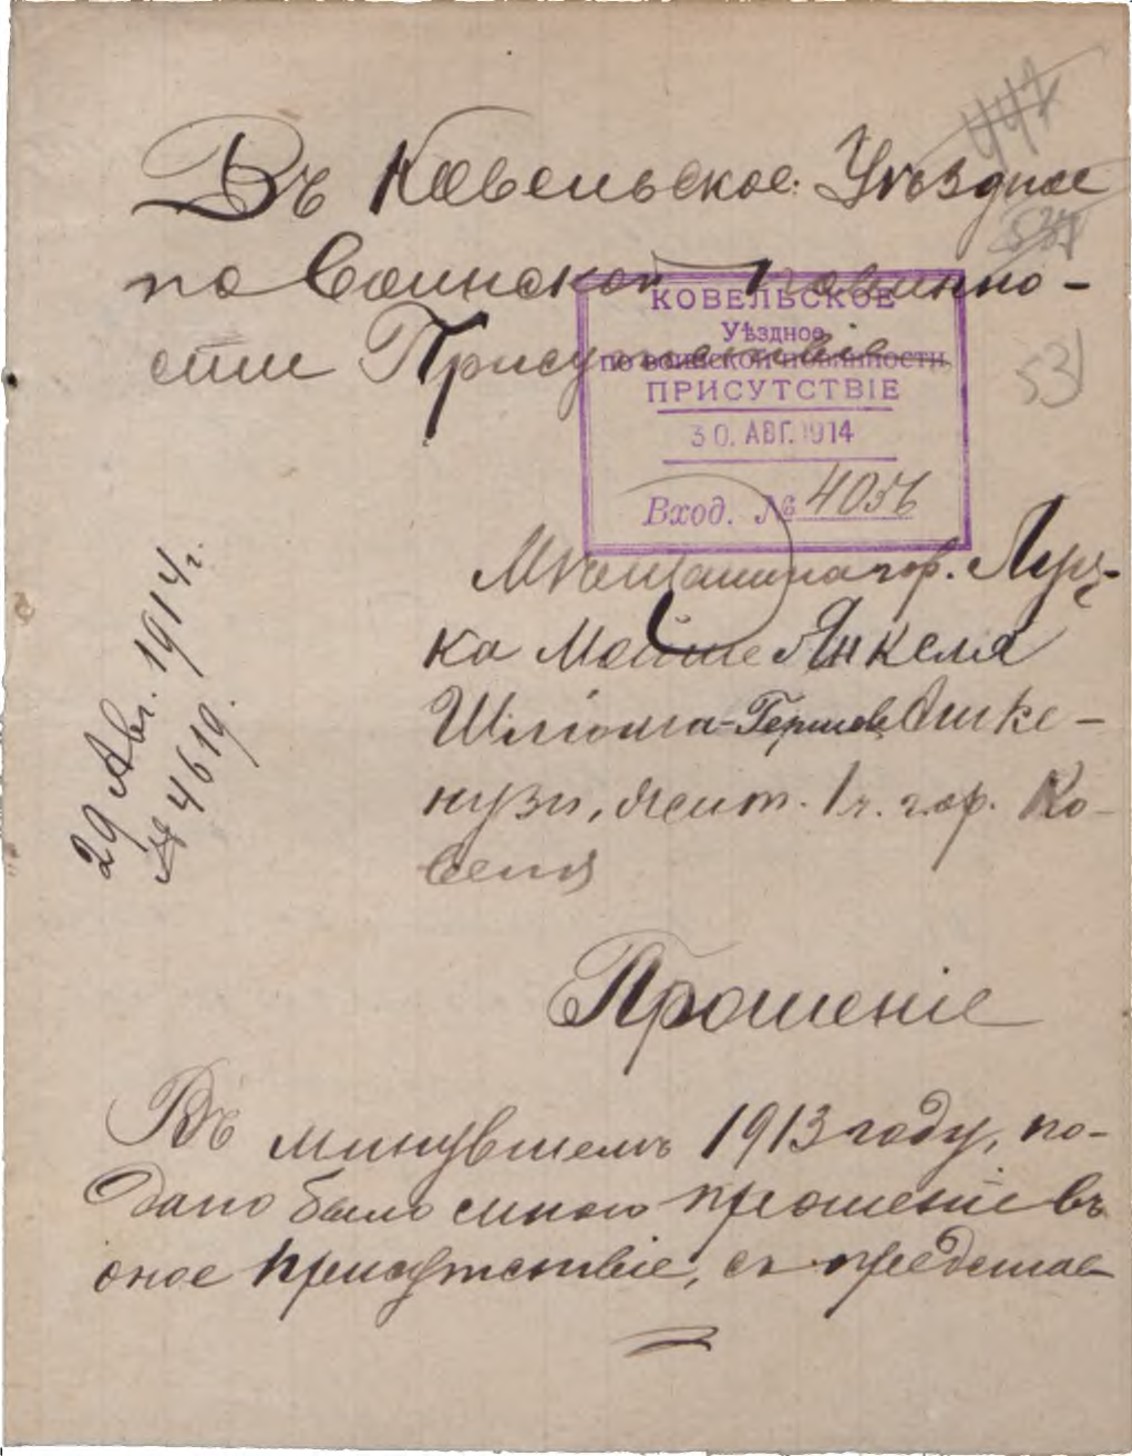 447
Въ Ковельское Уѣздное
537
по воинской повинно-
сти Присутствіе
КОВЕЛЬСКОЕ
Уѣздное
по воинской повинности
ПРИСУТСТВІЕ
30. АВГ. 1914
Вход. № 4056
531
Мѣщанина гор. Луц-
ка Мойше Янкеля
Шліома-Гершов Ашке-
нузи, жит. 1 ч. гор. Ко-
веля
29 Авг. 1914 г.
№ 4619.
Прошеніе
Въ минувшемъ 1913 году, по-
дано было мною прошеніе въ
оное присутствіе, съ представ-